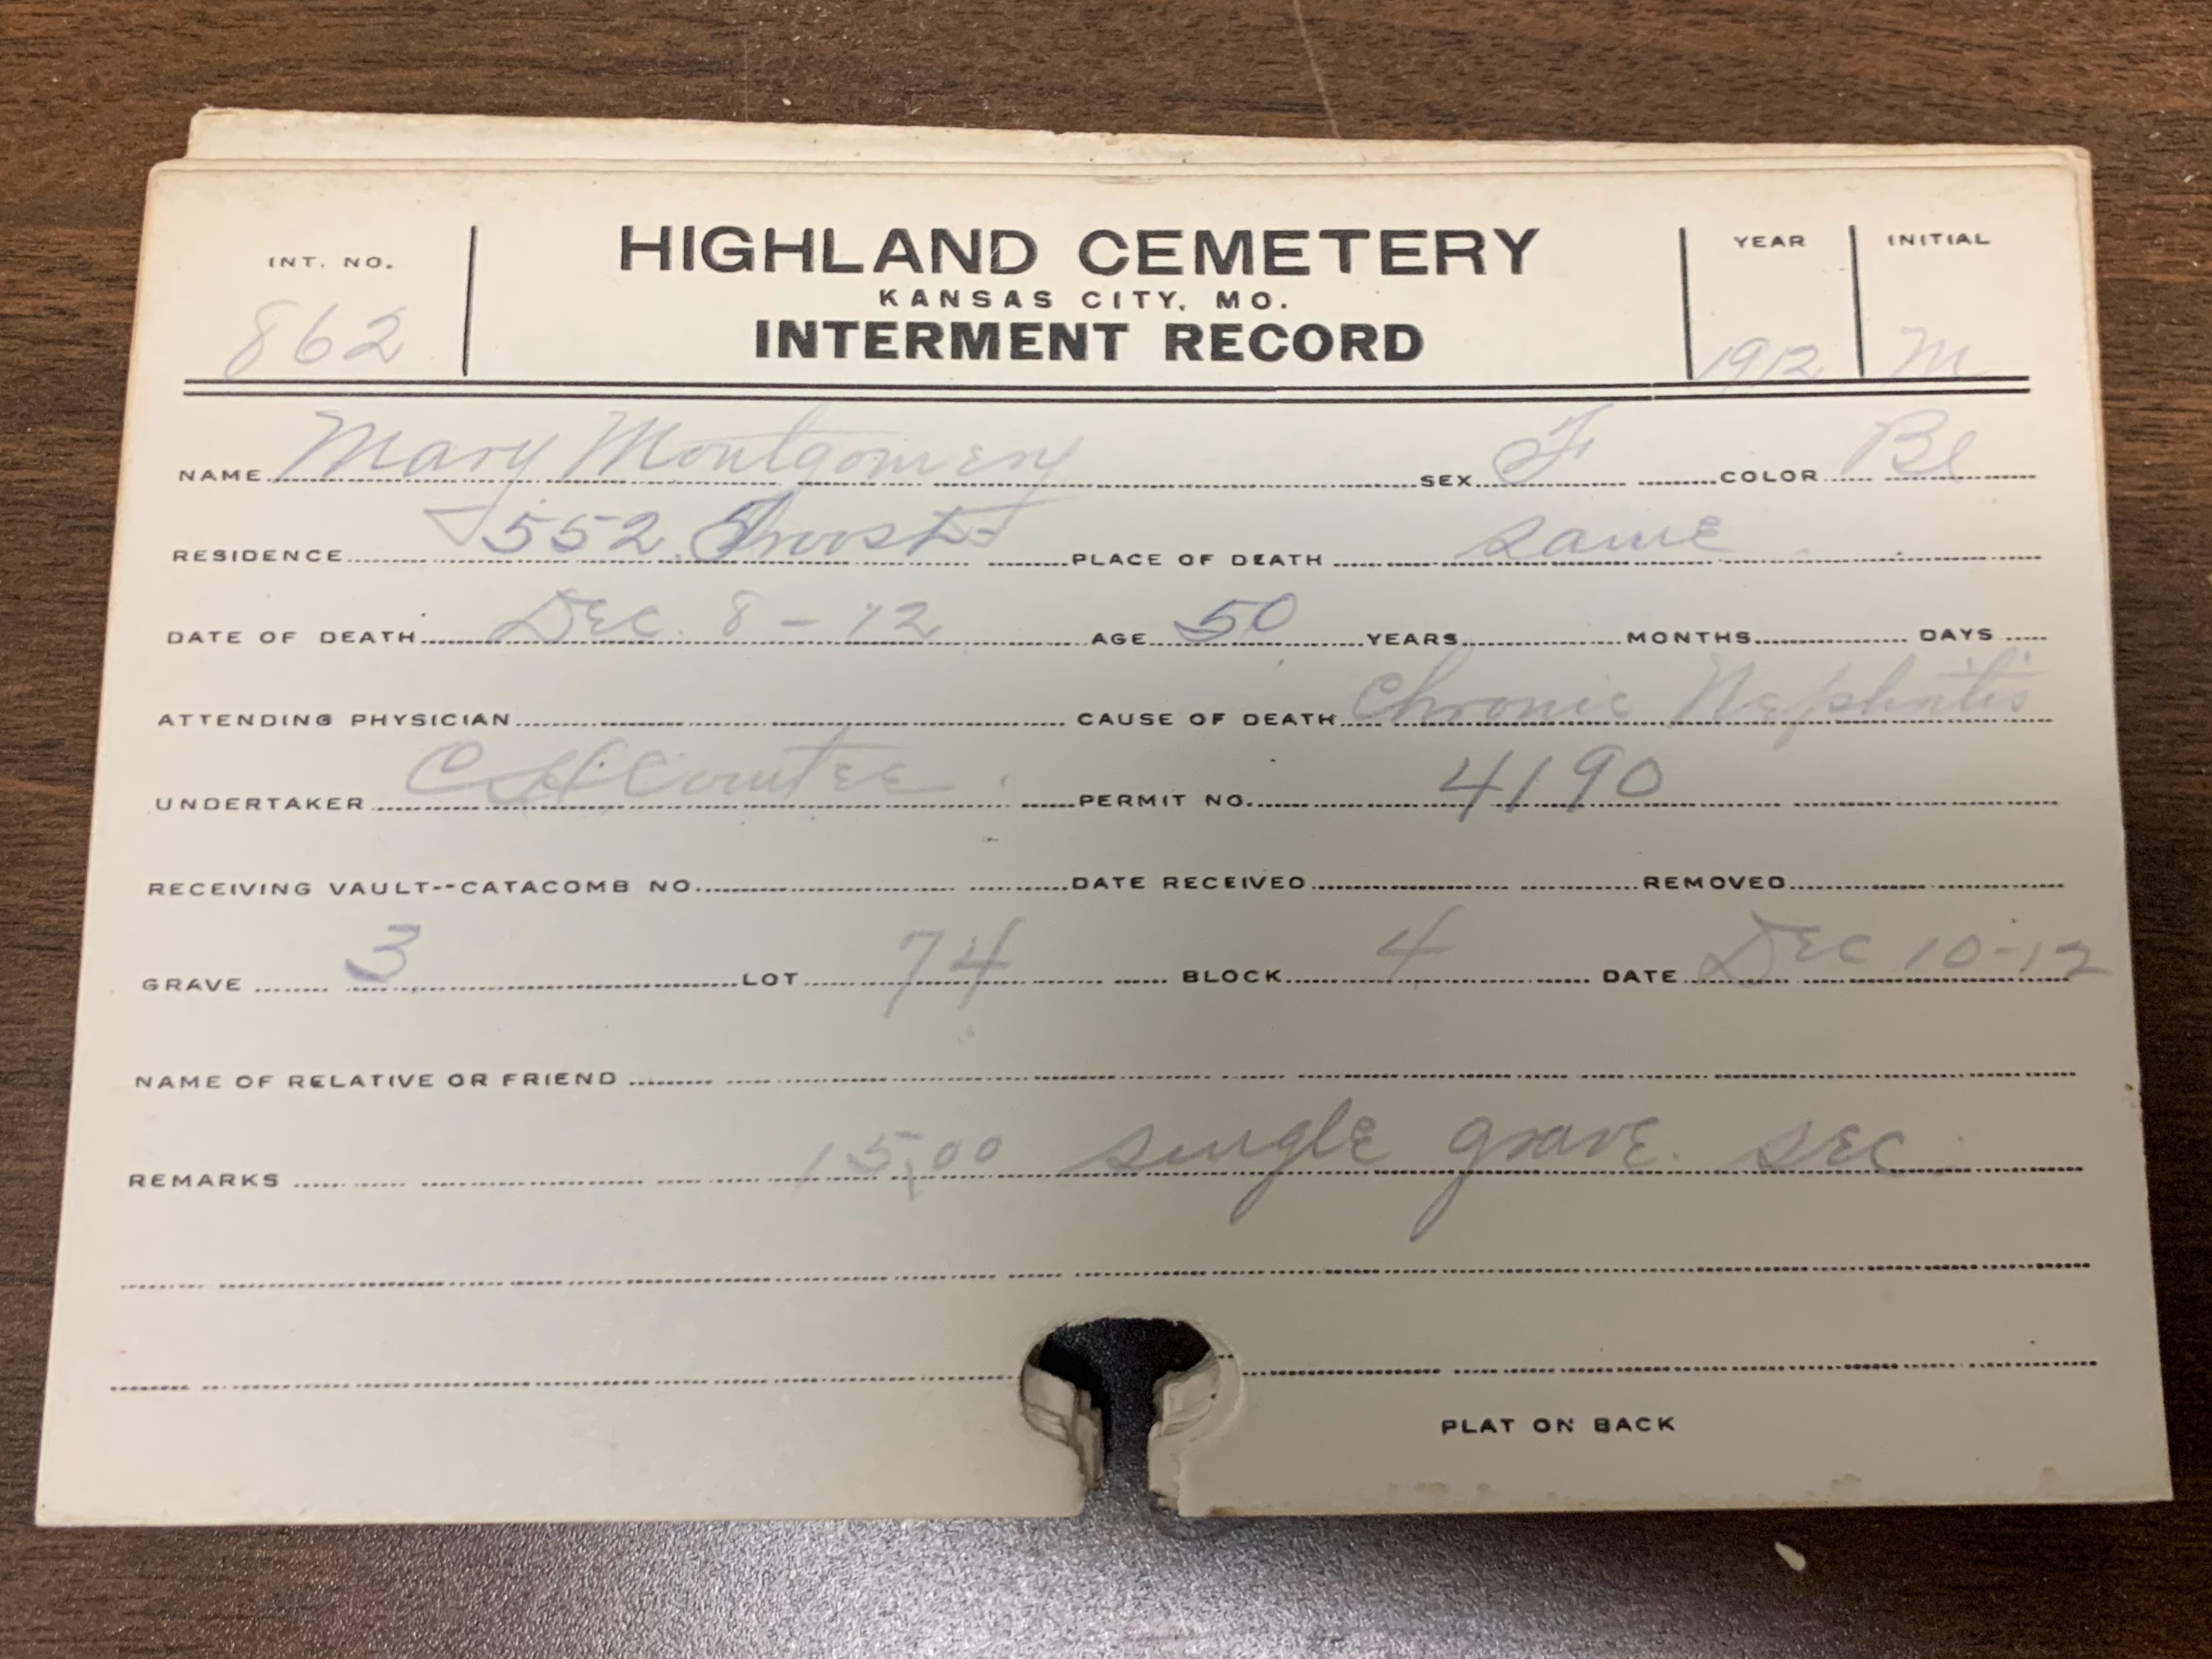 INT. NO. HIGHLAND CEMETERY YEAR INITIAL
KANSAS CITY, MO.
862 INTERMENT RECORD 1912 M
NAME Mary Montgomery SEX F COLOR Bl
RESIDENCE 552 Troost PLACE OF DEATH same
DATE OF DEATH Dec. 8-12 AGE 50 YEARS MONTHS DAYS
ATTENDING PHYSICIAN CAUSE OF DEATH Chronic Nephritis
UNDERTAKER C H Countee PERMIT NO. 4190
RECEIVING VAULT--CATACOMB NO. DATE RECEIVED REMOVED
GRAVE 3 LOT 74 BLOCK 4 DATE Dec 10-12
NAME OF RELATIVE OR FRIEND
REMARKS 15.00 single grave. sec.
PLAT ON BACK